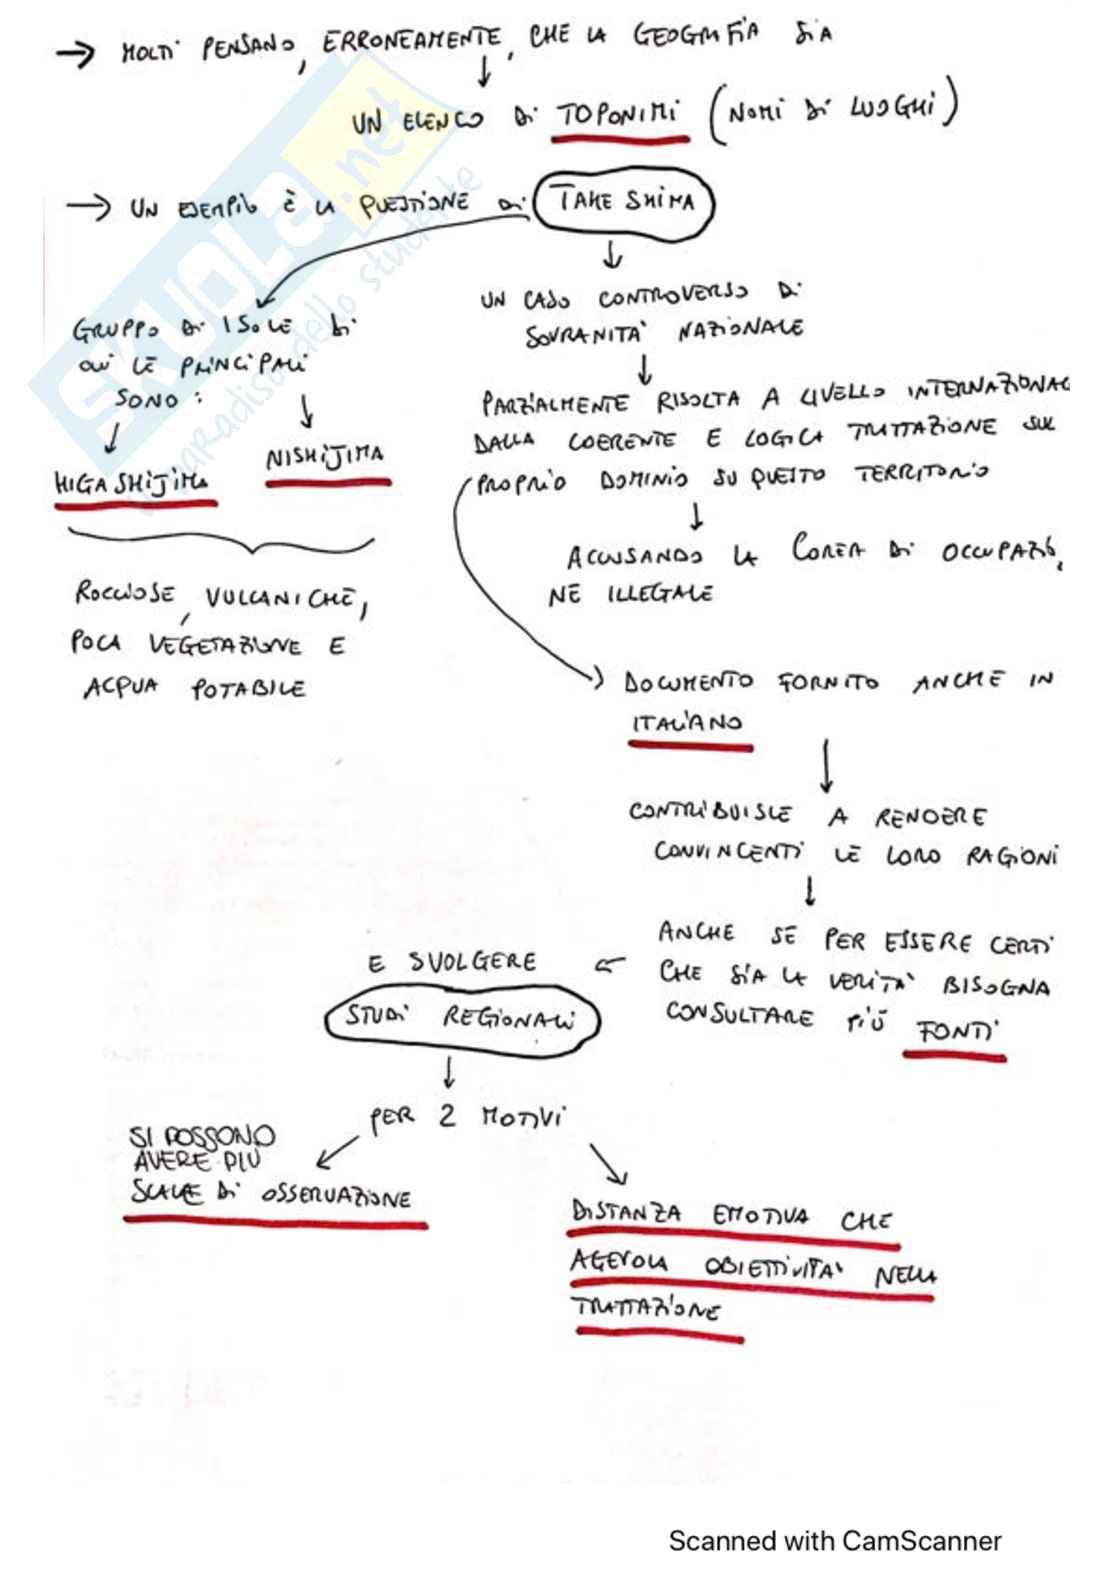 → MOLTI PENSANO, ERRONEAMENTE, CHE LA GEOGRAFIA SIA
UN ELENCO DI TOPONIMI (NOMI DI LUOGHI)
→ UN ESEMPIO È LA QUESTIONE DI TAKESHIMA
GRUPPO DI ISOLE DI
CUI LE PRINCIPALI
SONO:
HIGASHIJIMA
NISHIJIMA
ROCCIOSE, VULCANICHE,
POCA VEGETAZIONE E
ACQUA POTABILE
UN CASO CONTROVERSO DI
SOVRANITA' NAZIONALE
PARZIALMENTE RISOLTA A LIVELLO INTERNAZIONAL
DALLA COERENTE E LOGICA TRATTAZIONE SUL
PROPRIO DOMINIO SU QUESTO TERRITORIO
ACCUSANDO LA COREA DI OCCUPAZIO
NE ILLEGALE
DOCUMENTO FORNITO ANCHE IN
ITALIANO
CONTRIBUISCE A RENDERE
CONVINCENTI LE LORO RAGIONI
ANCHE SE PER ESSERE CERTI
CHE SIA LA VERITA' BISOGNA
CONSULTARE PIÙ FONTI
E SVOLGERE
STUDI REGIONALI
PER 2 MOTIVI
SI POSSONO
AVERE PIU
SCALE DI OSSERVAZIONE
DISTANZA EMOTIVA CHE
AGEVOLA OBIETTIVITA' NELLA
TRATTAZIONE
SKUOLA.net
il paradiso dello studente
Scanned with CamScanner